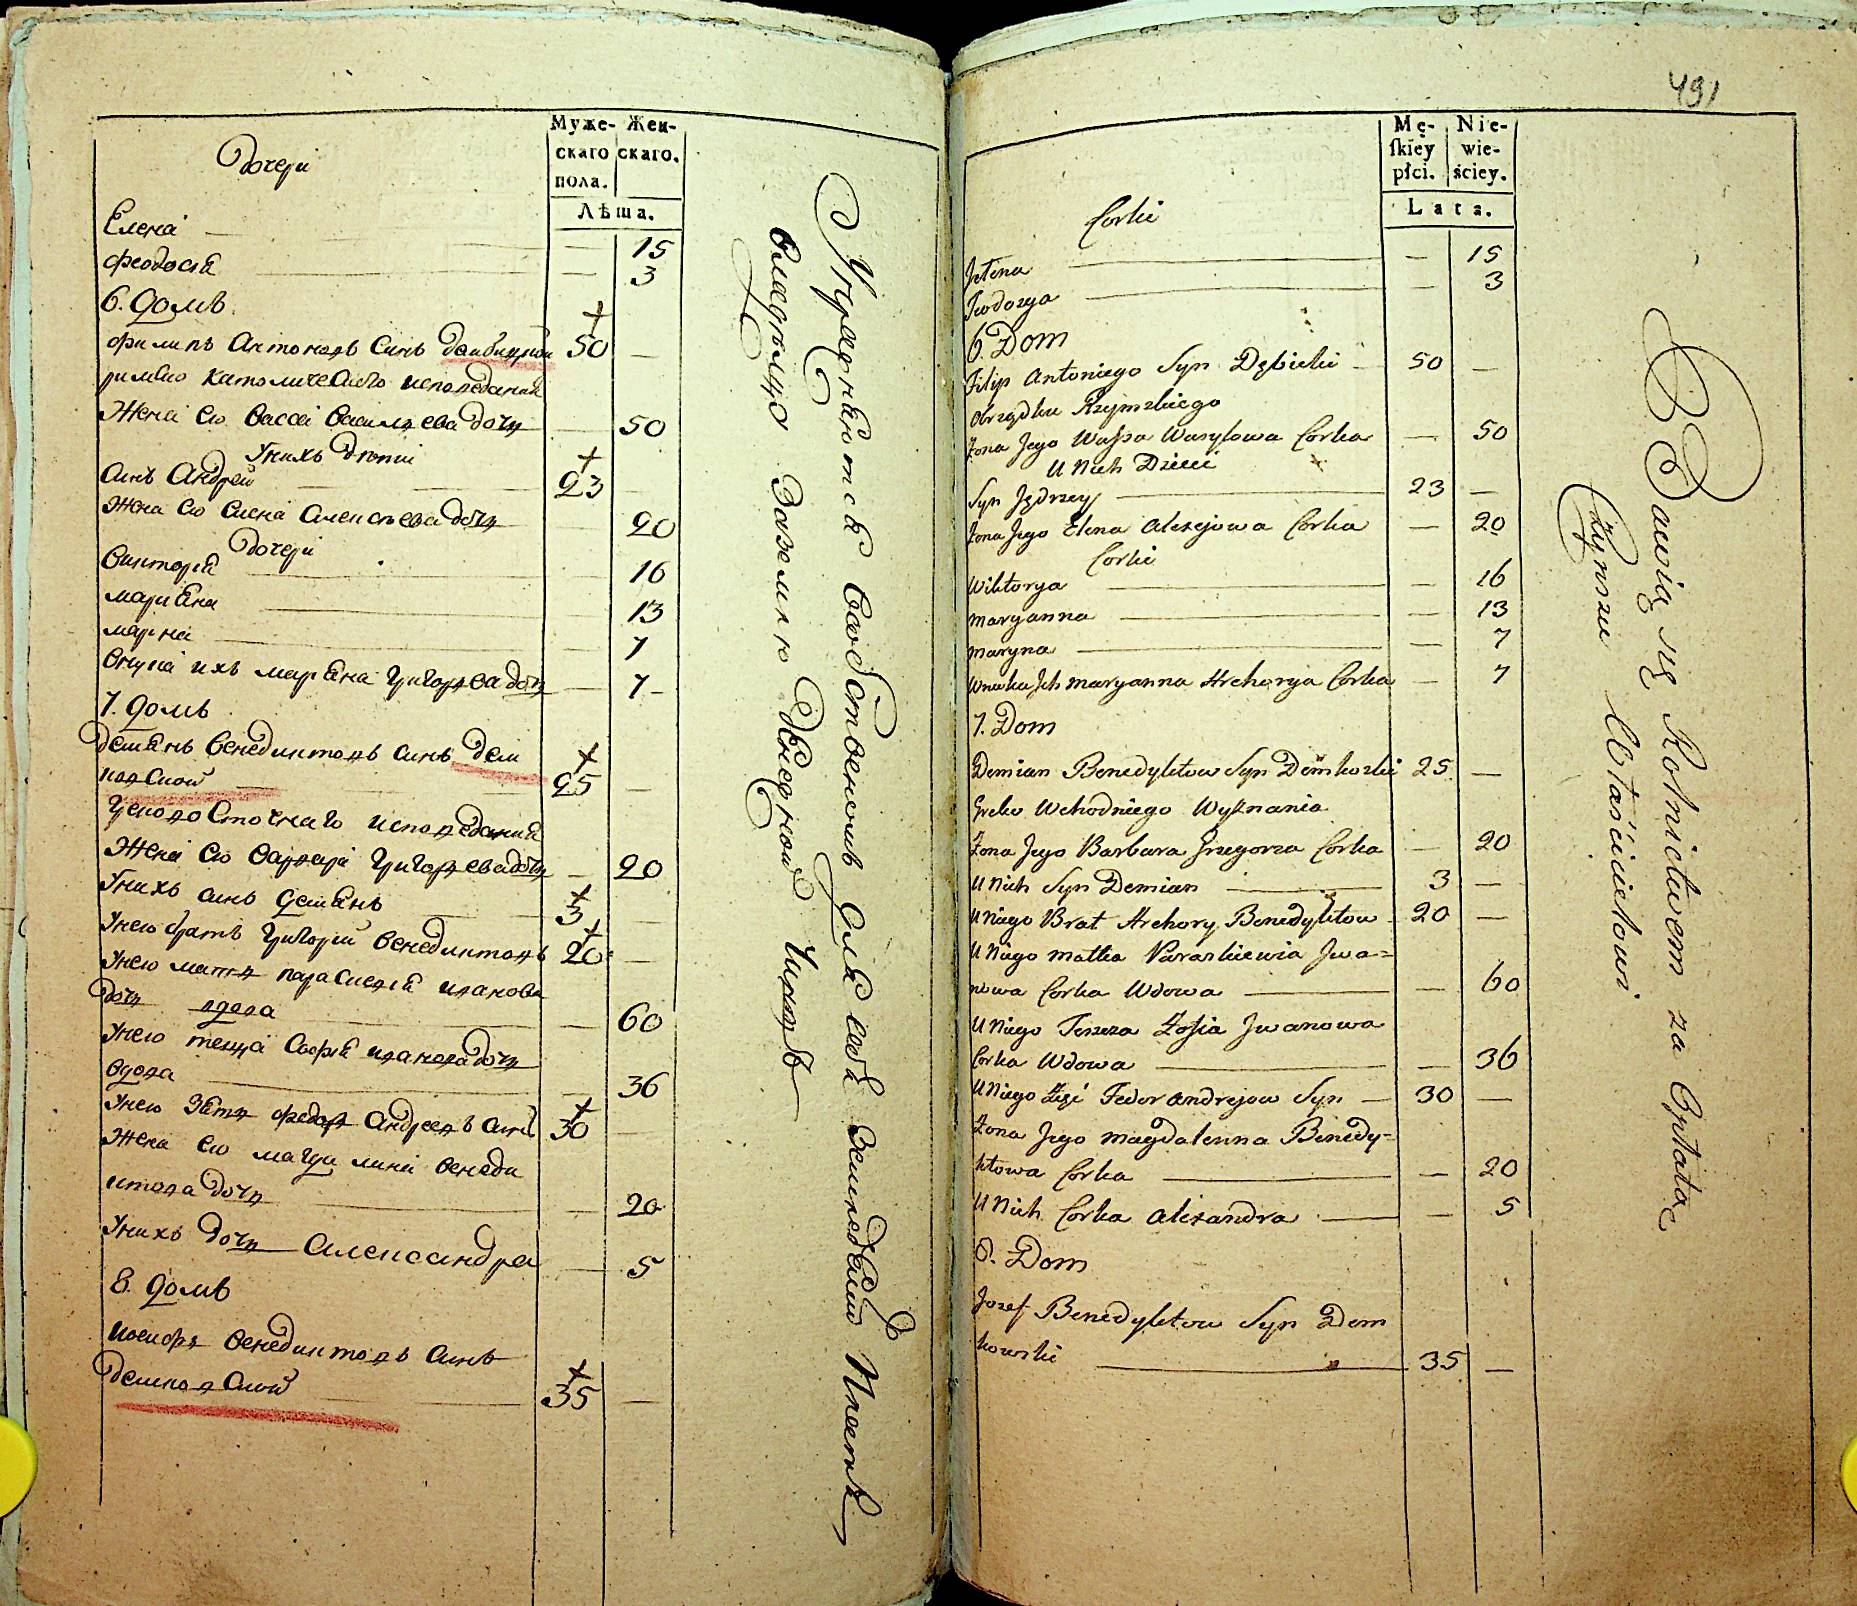 Муже-
скаго
пола.
Жен-
скаго.
Лѣта.
Дочери
Елена — 15
Феодосія — 3
6. Домъ
Филипъ Антоновъ Синъ Домбицкой 50 —
римско католическаго исповеданія
Жена его Васса Васильева дочь — 50
У нихъ дѣти
Синъ Андрей 23 —
Жена его Елена Алексѣева дочь — 20
Дочери
Викторія — 16
Маріяна — 13
Марина — 7
Внука ихъ Маріяна Григорьева дочь — 7
7. Домъ
Демянъ Венедиктовъ Синъ Дем
ковской 25 —
Грековосточнаго исповеданія
Жена его Варвара Григорьева дочь — 20
У нихъ Синъ Демянъ 3 —
У него братъ Григорій Венедиктовъ 20 —
У него мать Параскевія Иванова
дочь вдова — 60
У него теща Софія Иванова дочь
вдова — 36
У него Зять Федоръ Андреевъ Синъ 30 —
Жена его Магдалина Венеди
ктова дочь — 20
У нихъ дочь Александра — 5
8. Домъ
Иосифъ Венедиктовъ Синъ
Демковской 35 —
Упражняются въ собственомъ для себя земледѣліи
владѣльцу за землю денежной чиншъ
491
Mę-
skiey
płci.
Nie-
wie-
ściey.
Lata.
Corki
Jelena — 15
Teodozya — 3
6. Dom
Filip Antoniego Syn Dębicki 50 —
obrządku Rzymskiego
Żona Jego Wassa Wasylowa Corka — 50
U Nich Dzieci
Syn Jędrzey 23 —
Żona Jego Elena Alexejowa Corka — 20
Corki
Wiktorya — 16
Maryanna — 13
Maryna — 7
Wnuka Ich Maryanna Hrehorya Corka — 7
7. Dom
Demian Benedyktow Syn Demkowski 25 —
Greko Wchodniego Wyznania
Żona Jego Barbara Grzegorza Corka — 20
U Nich Syn Demian 3 —
U Niego Brat Hrehory Benedyktow 20 —
U Niego Matka Paraskiewia Jwa=
nowa Corka Wdowa — 60
U Niego Teszcza Zofia Jwanowa
Corka Wdowa — 36
U Niego Zięć Fedor Andrejow Syn 30 —
Żona Jego Magdalenna Benedy=
ktowa Corka — 20
U Nich Corka Alexandra — 5
8. Dom
Jozef Benedyktow Syn Dem
kowski 35 —
Bawią się Rolnictwem za Opłatą
Czynszu Właścicielowi